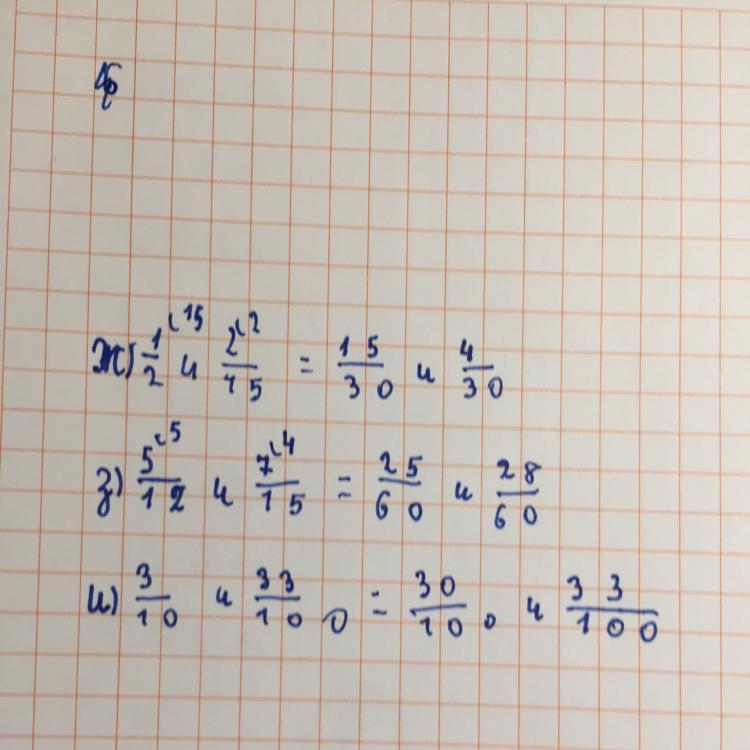 ж) 1/2 ⁽¹⁵ и 2/15 ⁽² = 15/30 и 4/30
з) 5/12 ⁽⁵ и 7/15 ⁽⁴ = 25/60 и 28/60
и) 3/10 и 33/100 = 30/100 и 33/100